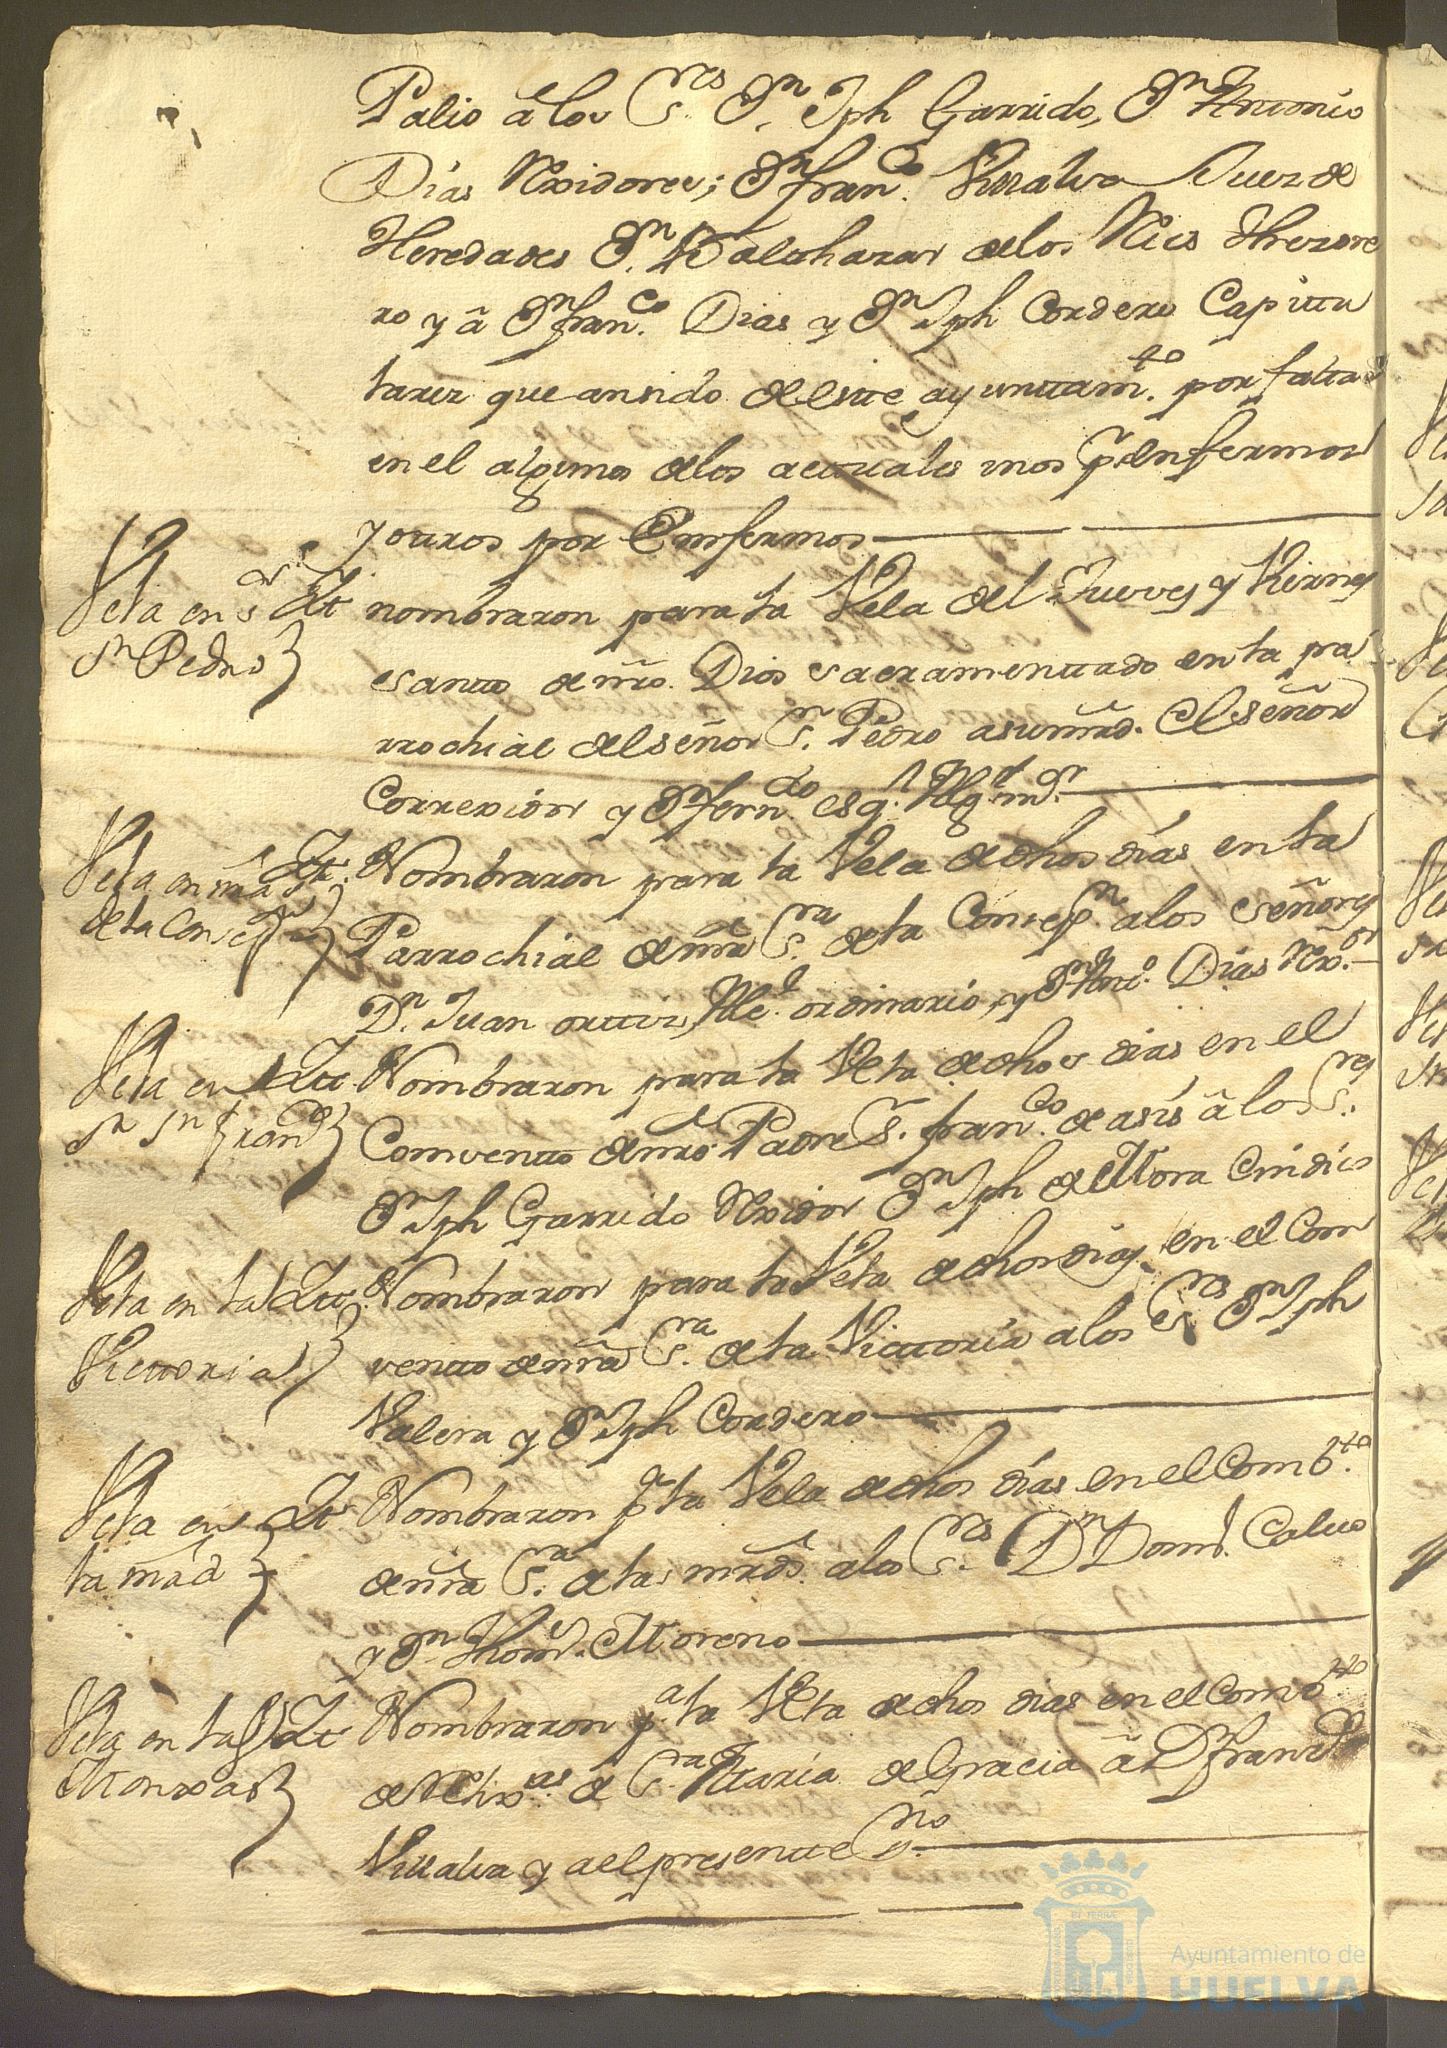 Palio â los S.res D.n Jph Garrido, D.n Antonio
Días Rexidores; D.n fran.co Villalva Juez de
Heredades D.n Balthazar de los Reies thezore
ro y â D.n fran.co Dias y D.n Jph Cordero Capittu
lares que ansido de este ayunttam.to por falta
en el algunos de los acttuales unos p.r enfermos
y ottros por Emfermos
Vela en s.or
S.n Pedro
Itt nombraron para la Vela del Jueves y Viernes
santto de nro. Dios sacramenttado en la pa
rrochial del señor S.n Pedro a su mrd. el señor
Correxidor y D.n fern.do esq.l Alg.l m.or
Vela en nrã S.ra
de la Consep.n
Itt. Nombraron para la Vela de dhos días en la
Parrochial de nrã S.ra de la Consep.n a los señores
D.n Juan orttiz, Alc.e ordinario, y D.n Antt.o Días Rex.or
Vela en
S.n fran.co
Itt Nombraron para la Vela de dhos días en el
Comventto de nro. Padre S. fran.co de asís â los S.res
D.n Jph Garrido Rexidor D.n Jph de Mora Cindico
Vela en la
Victtoria
Itt. Nombraron para la Vela de dhos dias en el Com
ventto de nrã S.ra de la Victtoria a los S.res D.n Jph
Valera y D.n Jph Cordero
Vela en
la mrd
Itt Nombraron p.a la Vela de dhos días en el Comb.to
de nrã S.ra de las mrds. a los S.res D.n Dom.o Calvo
y D.n Thom.s Moreno
Vela en las
Monxas
Itt Nombraron p.a la Vela de dhos dias en el Comb.tto
de Relix.as de S.ra María de Gracia â D.n fran.co
Villalva y a el presentte S.no
Ayuntamiento de
HUELVA